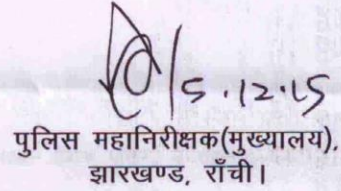 5.12.15
पुलिस महानिरीक्षक(मुख्यालय),
झारखण्ड, राँची।